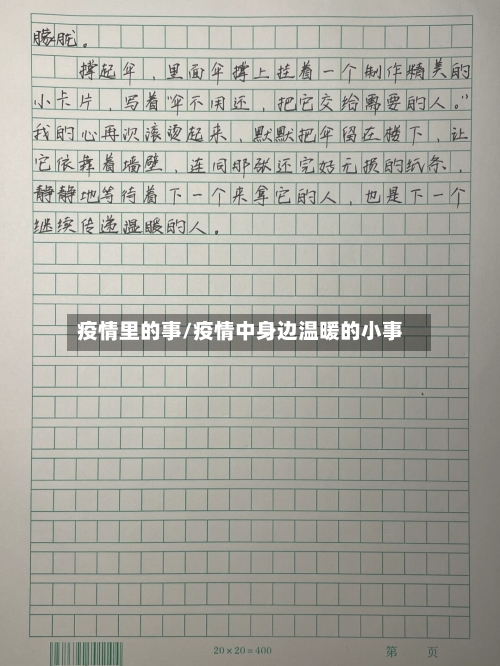 朦胧。
撑起伞，里面伞撑上挂着一个制作精美的
小卡片，写着“伞不用还，把它交给需要的人。”
我的心再次滚烫起来，默默把伞留在楼下，让
它依靠着墙壁，连同那张还完好无损的纸条，
静静地等待着下一个来拿它的人，也是下一个
继续传递温暖的人。
疫情里的事/疫情中身边温暖的小事
20×20=400
第 页